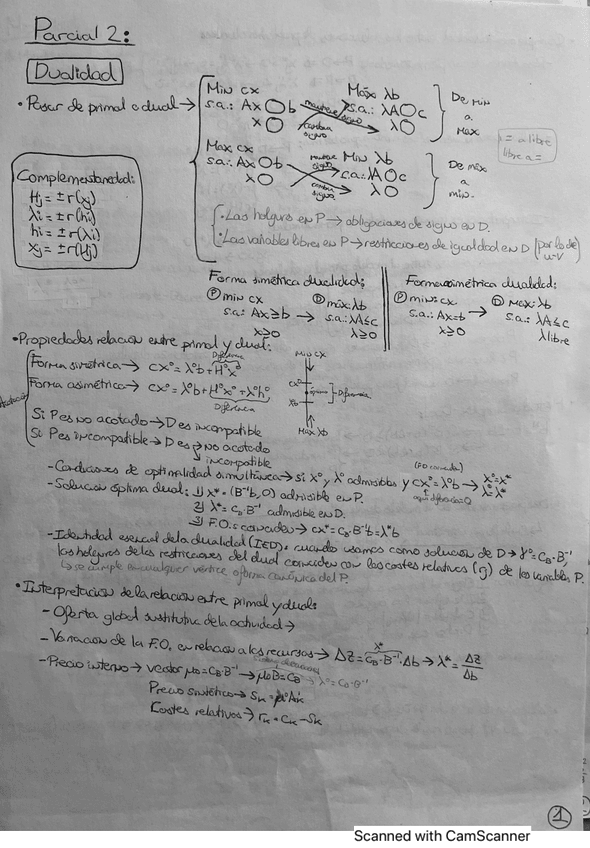 Parcial 2:
Dualidad
• Pasar de primal a dual →
Min cx
s.a.: Ax◯b
x◯
mantiene signo
cambia signo
Máx λb
s.a.: λA◯c
λ◯
De min a Max
= a libre
libre a =
Max cx
s.a.: Ax◯b
x◯
mantiene signo
cambia signo
Min λb
s.a.: λA◯c
λ◯
De máx a min.
• Las holguras en P → obligaciones de signo en D.
• Las variables libres en P → restricciones de igualdad en D (por lo de u-v)
Complementariedad:
Hj = ± r(xj)
λi = ± r(hi)
hi = ± r(λi)
xj = ± r(Hj)
Forma simétrica dualidad:
Ⓟ min cx
s.a: Ax≥b →
x≥0
Ⓓ máx: λb
s.a.: λA≤c
λ≥0
Forma asimétrica dualidad:
Ⓟ min: cx
s.a: Ax=b →
x≥0
Ⓓ Max: λb
s.a.: λA≤c
λ libre
• Propiedades relación entre primal y dual:
Forma simétrica → cx° = λ°b + H°x°
Diferencia
Forma asimétrica → cx° = λ°b + H°x° + λ°h°
Diferencia
Si P es no acotado → D es incompatible
Si P es incompatible → D es → no acotado
incompatible
Min cx
cx°
óptimo
λb
Diferencia
Max λb
- Condiciones de optimalidad simultánea → si x° y λ° admisibles y cx° = λ°b → x° = x*
λ° = λ*
aquí diferencia = 0
- Solución óptima dual: 1) x* = (B⁻¹b, 0) admisible en P.
2) λ* = cB·B⁻¹ admisible en D.
3) F.O.s coinciden → cx* = cB·B⁻¹b = λ*b
- Identidad esencial de la dualidad (IED): cuando usamos como solución de D → λ° = cB·B⁻¹,
las holguras de las restricciones del dual coinciden con los costes relativos (rj) de las variables P.
↳ se cumple en cualquier vértice o forma canónica del P.
• Interpretación de la relación entre primal y dual:
- Oferta global sustitutiva de la actividad →
- Variación de la F.O. en relación a los recursos → ΔZ = cB·B⁻¹·Δb → λ* = ΔZ/Δb
- Precio interno → vector μ° = cB·B⁻¹ → μ°B = cB → λ° = cB·B⁻¹
Precio sintético → Sk = μ°Ak
Costes relativos → rk = ck − Sk
1
Scanned with CamScanner